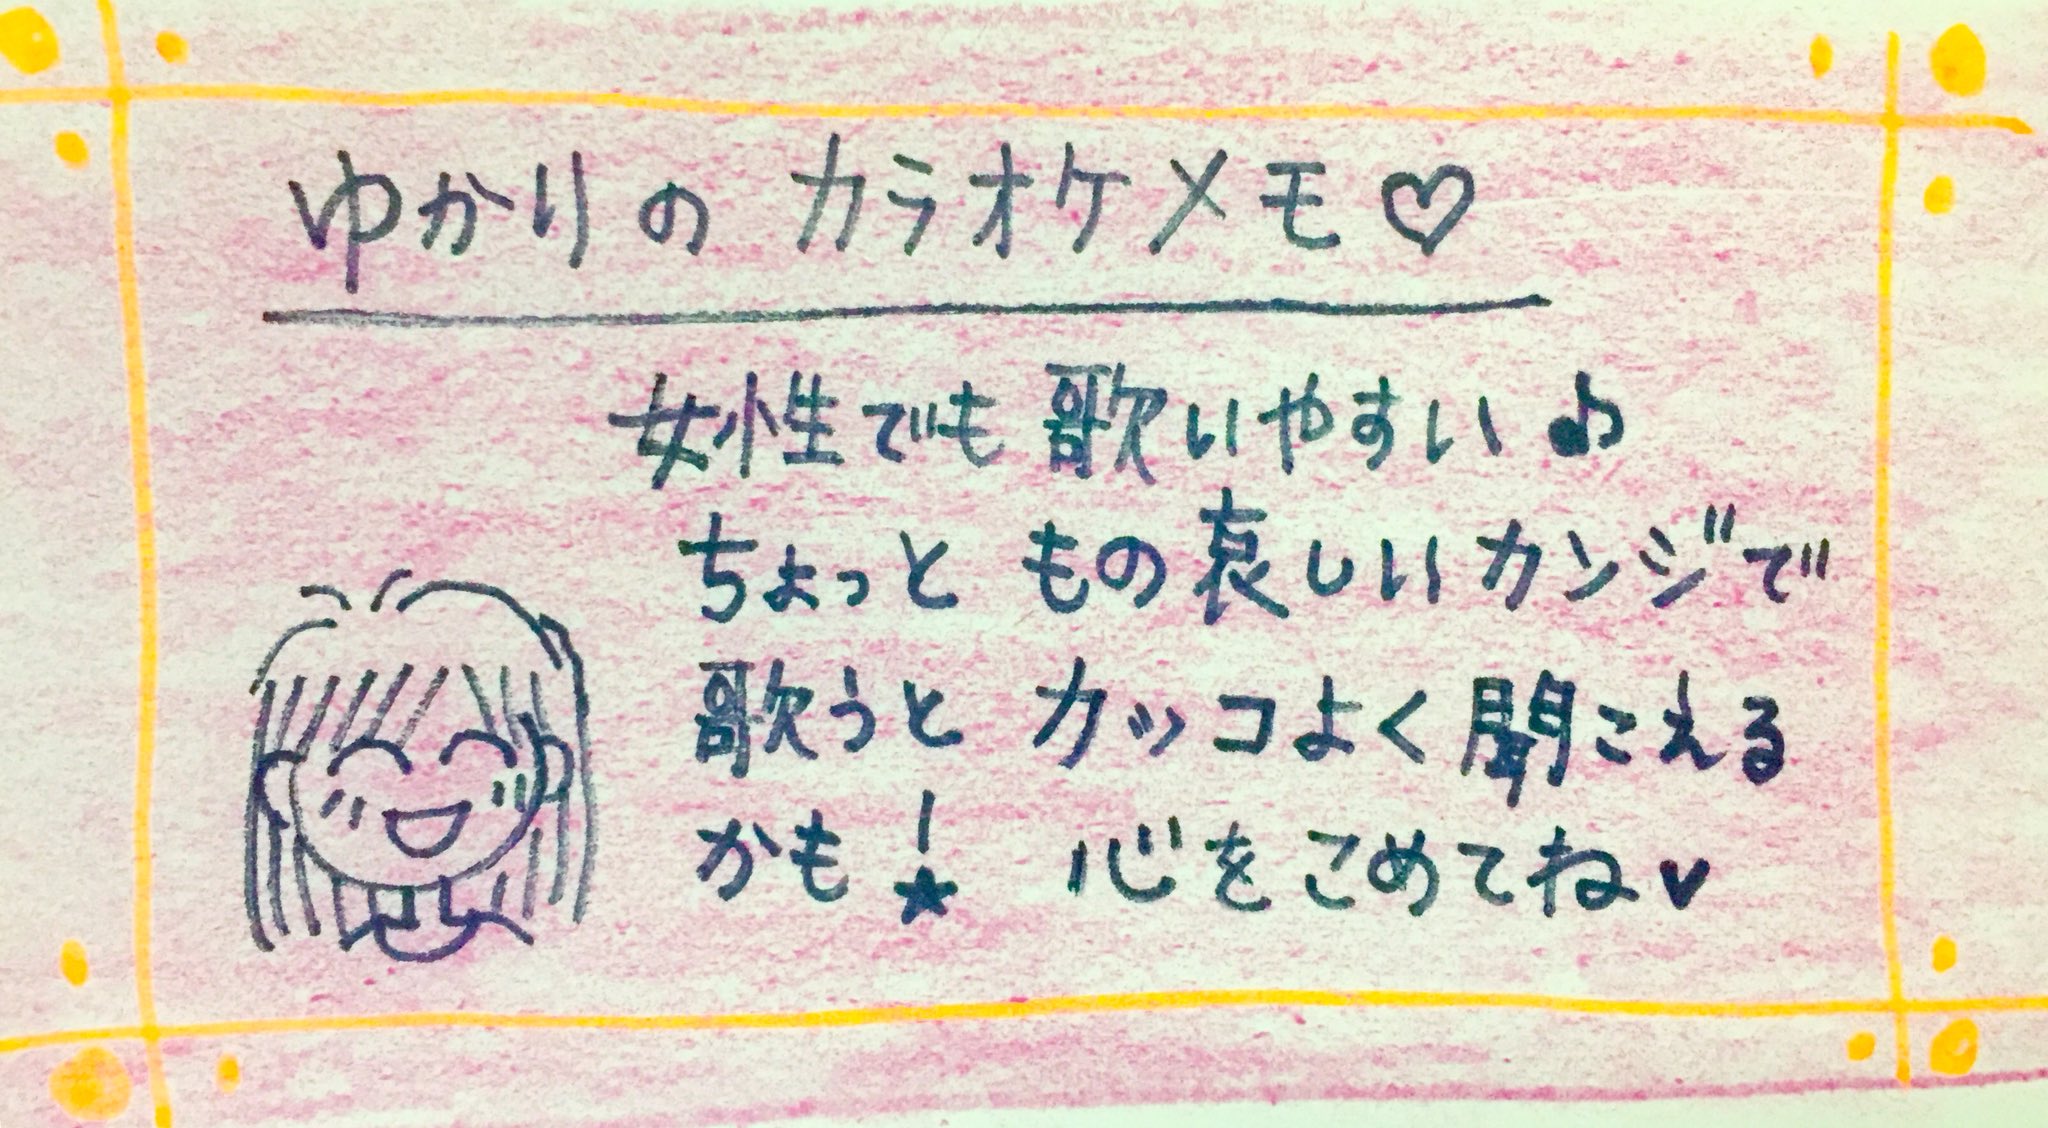 ゆかりの カラオケメモ♡
女性でも歌いやすい♪
ちょっと もの哀しいカンジで
歌うと カッコよく聞こえる
かも! 心をこめてね♥